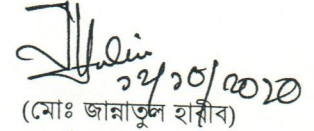 ১২/১০/২০২০
(মোঃ জান্নাতুল হাবীব)